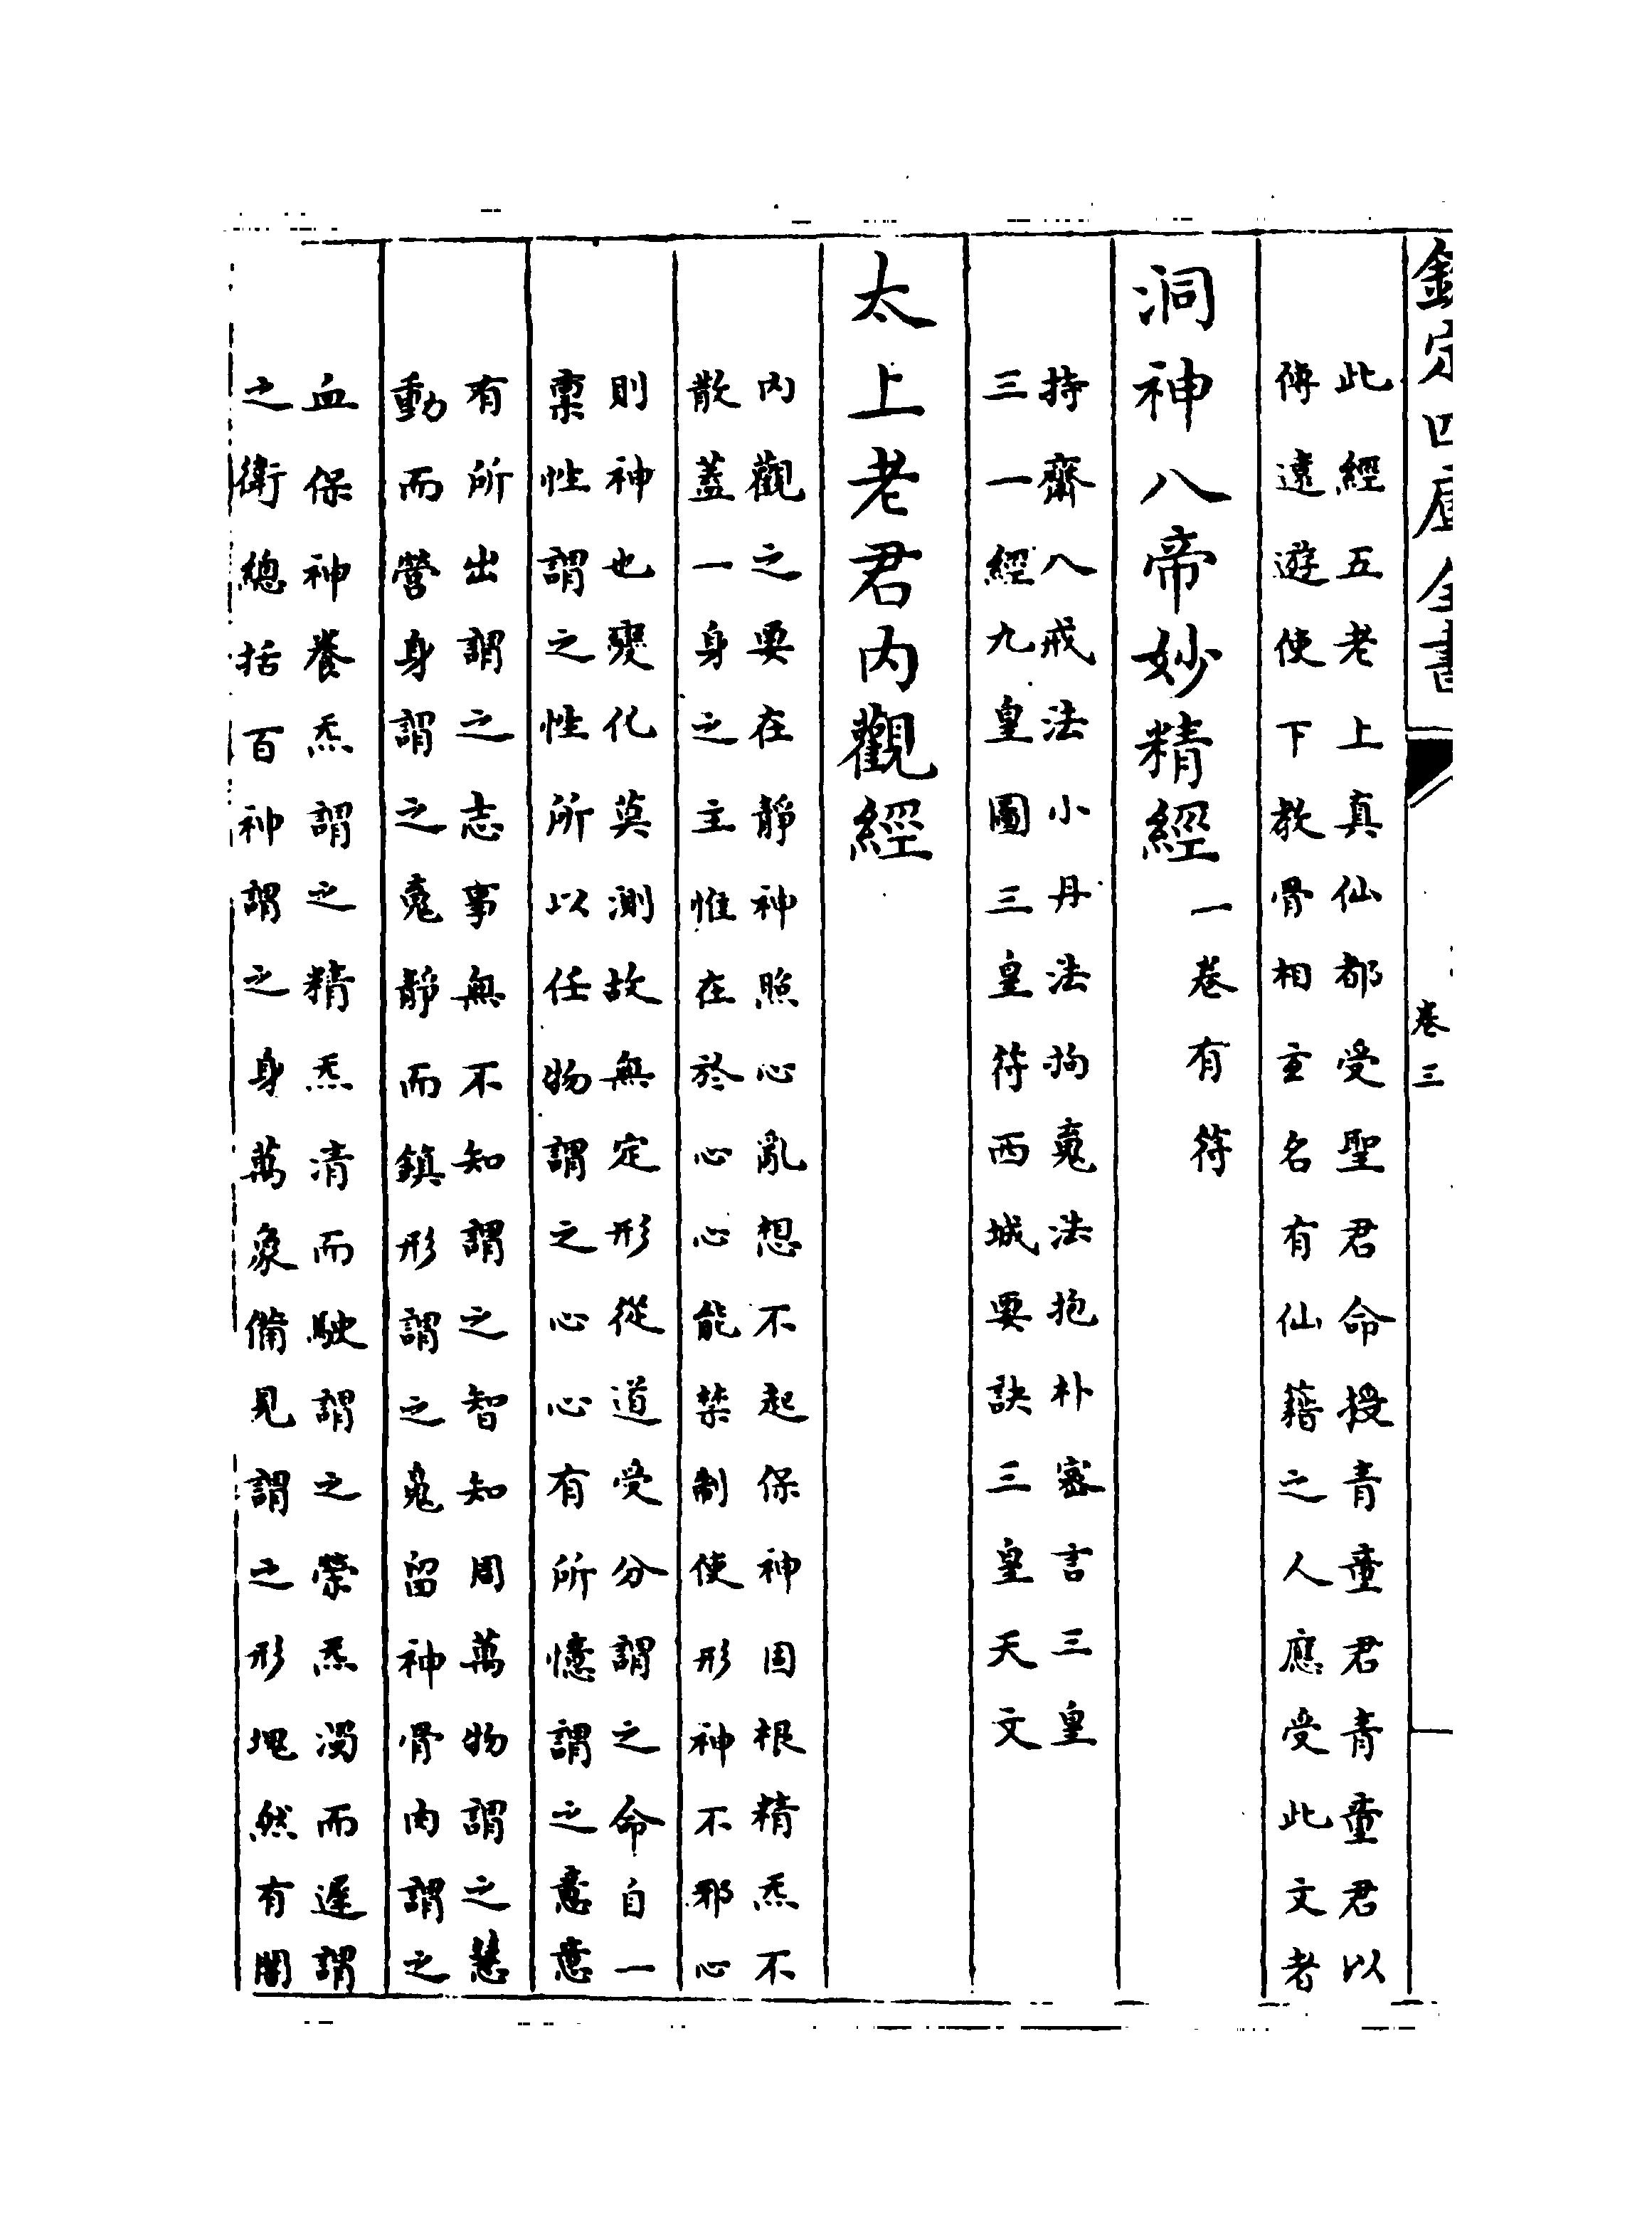 欽定四庫全書
卷三
此經五老上真仙都受聖君命授青童君青童君以
傳遠遊使下教骨相主名有仙籍之人應受此文者
洞神八帝妙精經一卷有符
持齋八戒法小丹法拘䰟法抱朴密言三皇
三一經九皇圖三皇符西城要訣三皇天文
太上老君內觀經
內觀之要在靜神照心亂想不起保神固根精炁不
散蓋一身之主惟在於心心能禁制使形神不邪心
則神也變化莫測故無定形從道受分謂之命自一
稟性謂之性所以任物謂之心心有所憶謂之意意
有所出謂之志事無不知謂之智知周萬物謂之慧
動而營身謂之䰟靜而鎮形謂之魄留神骨肉謂之
血保神養炁謂之精炁清而駛謂之榮炁濁而遲謂
之衛總括百神謂之身萬象備見謂之形塊然有閡